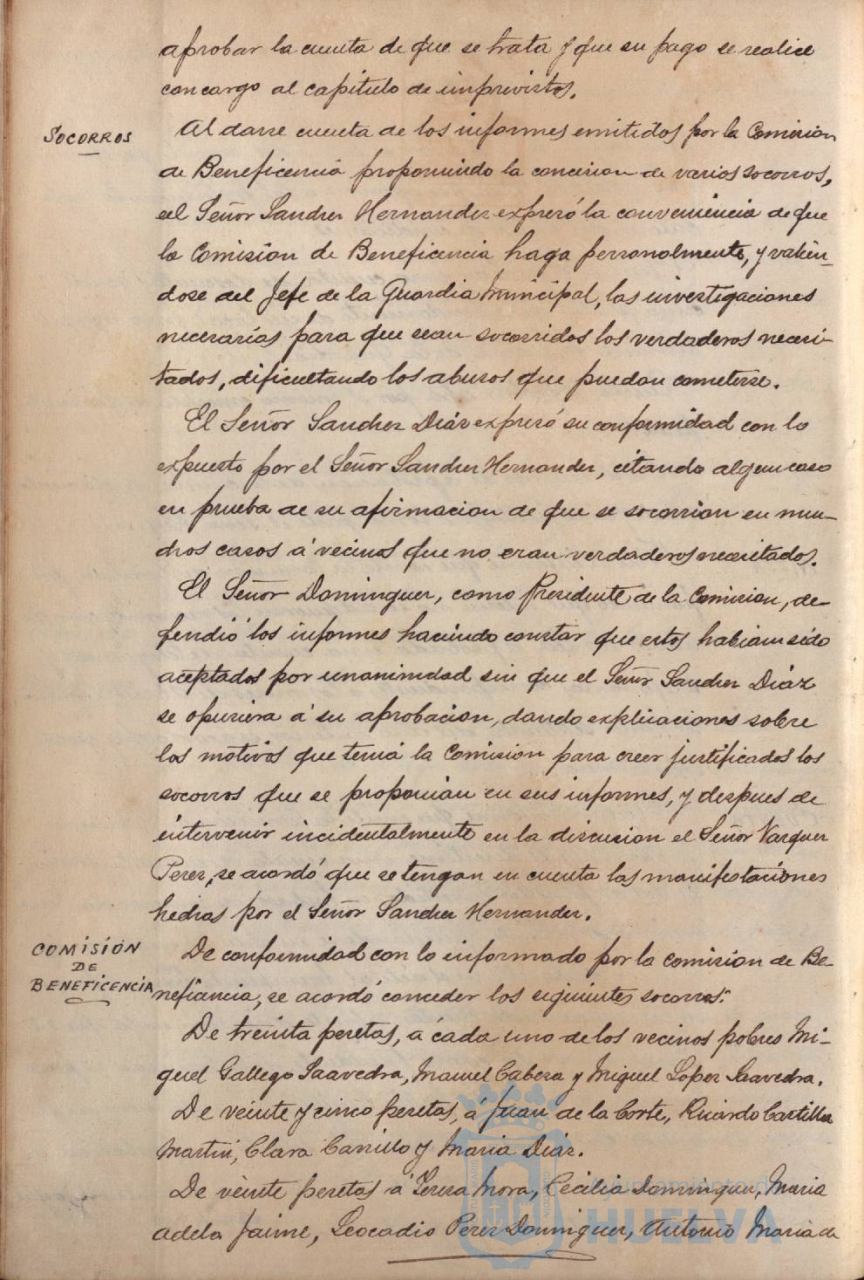 aprobar la cuenta de que se trata y que su pago se realice
con cargo al capitulo de imprevistos.
SOCORROS
Al darse cuenta de los informes emitidos por la Comision
de Beneficencia proponiendo la concesion de varios socorros,
el Señor Sanchez Hernandez expresó la conveniencia de que
la Comision de Beneficencia haga personalmente, y valien-
dose del Jefe de la Guardia Municipal, las investigaciones
necesarias para que sean socorridos los verdaderos necesi-
tados, dificultando los abusos que puedan cometerse.
El Señor Sanchez Diáz expresó su conformidad con lo
expuesto por el Señor Sanchez Hernandez, citando algun caso
en prueba de su afirmacion de que se socorrian en mu-
chos casos á vecinos que no eran verdaderos necesitados.
El Señor Dominguez, como Presidente de la Comision, de-
fendió los informes haciendo constar que estos habian sido
aceptados por unanimidad sin que el Señor Sanchez Diáz
se opusiera á su aprobacion, dando explicaciones sobre
los motivos que tenia la Comision para creer justificados los
socorros que se proponian en sus informes, y despues de
intervenir incidentalmente en la discusion el Señor Vazquez
Perez, se acordó que se tengan en cuenta las manifestaciones
hechas por el Señor Sanchez Hernandez.
COMISIÓN
DE
BENEFICENCIA
De conformidad con lo informado por la comision de Be-
neficencia, se acordó conceder los siguientes socorros:
De treinta pesetas, á cada uno de los vecinos pobres Mi-
guel Gallego Saavedra, Manuel Cabeza y Miguel Lopez Saavedra.
De veinte y cinco pesetas, á Juan de la Corte, Ricardo Castilla
Martin, Clara Carrillo y Maria Diáz.
De veinte pesetas á Teresa Mora, Cecilia Dominguez, Maria
adela Jaime, Leocadio Perez Dominguez, Antonio Maria de
HUELVA